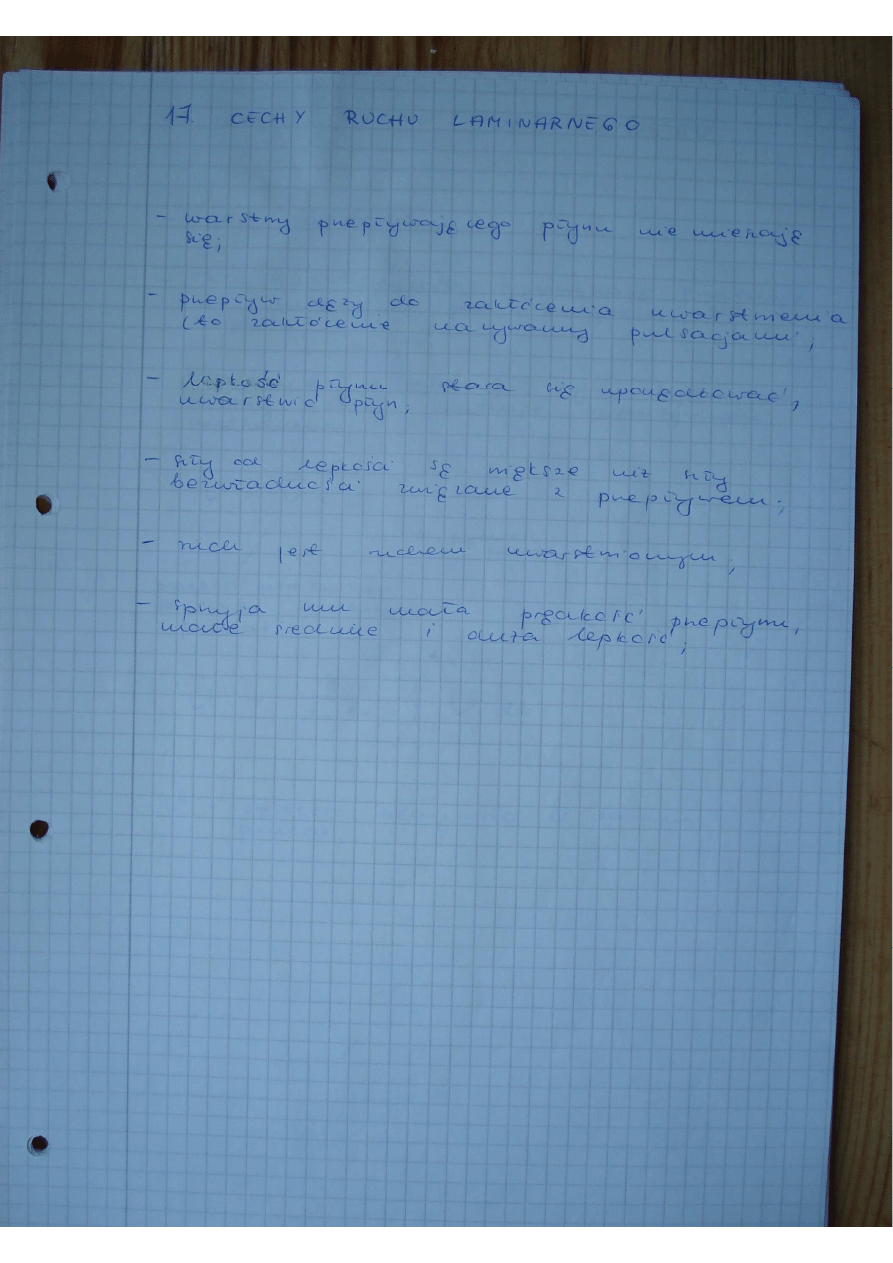 17. CECHY RUCHU LAMINARNEGO
- warstwy przepływającego płynu nie mieszają
się;
- przepływ dąży do zakłócenia uwarstwienia
(to zakłócenie nazywamy pulsacjami;
- lepkość płynu stara się uporządkować,
uwarstwić płyn;
- siły od lepkości są większe niż siły
bezwładności związane z przepływem;
- ruch jest ruchem uwarstwionym;
- sprzyja mu mała prędkość przepływu,
małe średnie i duża lepkość;